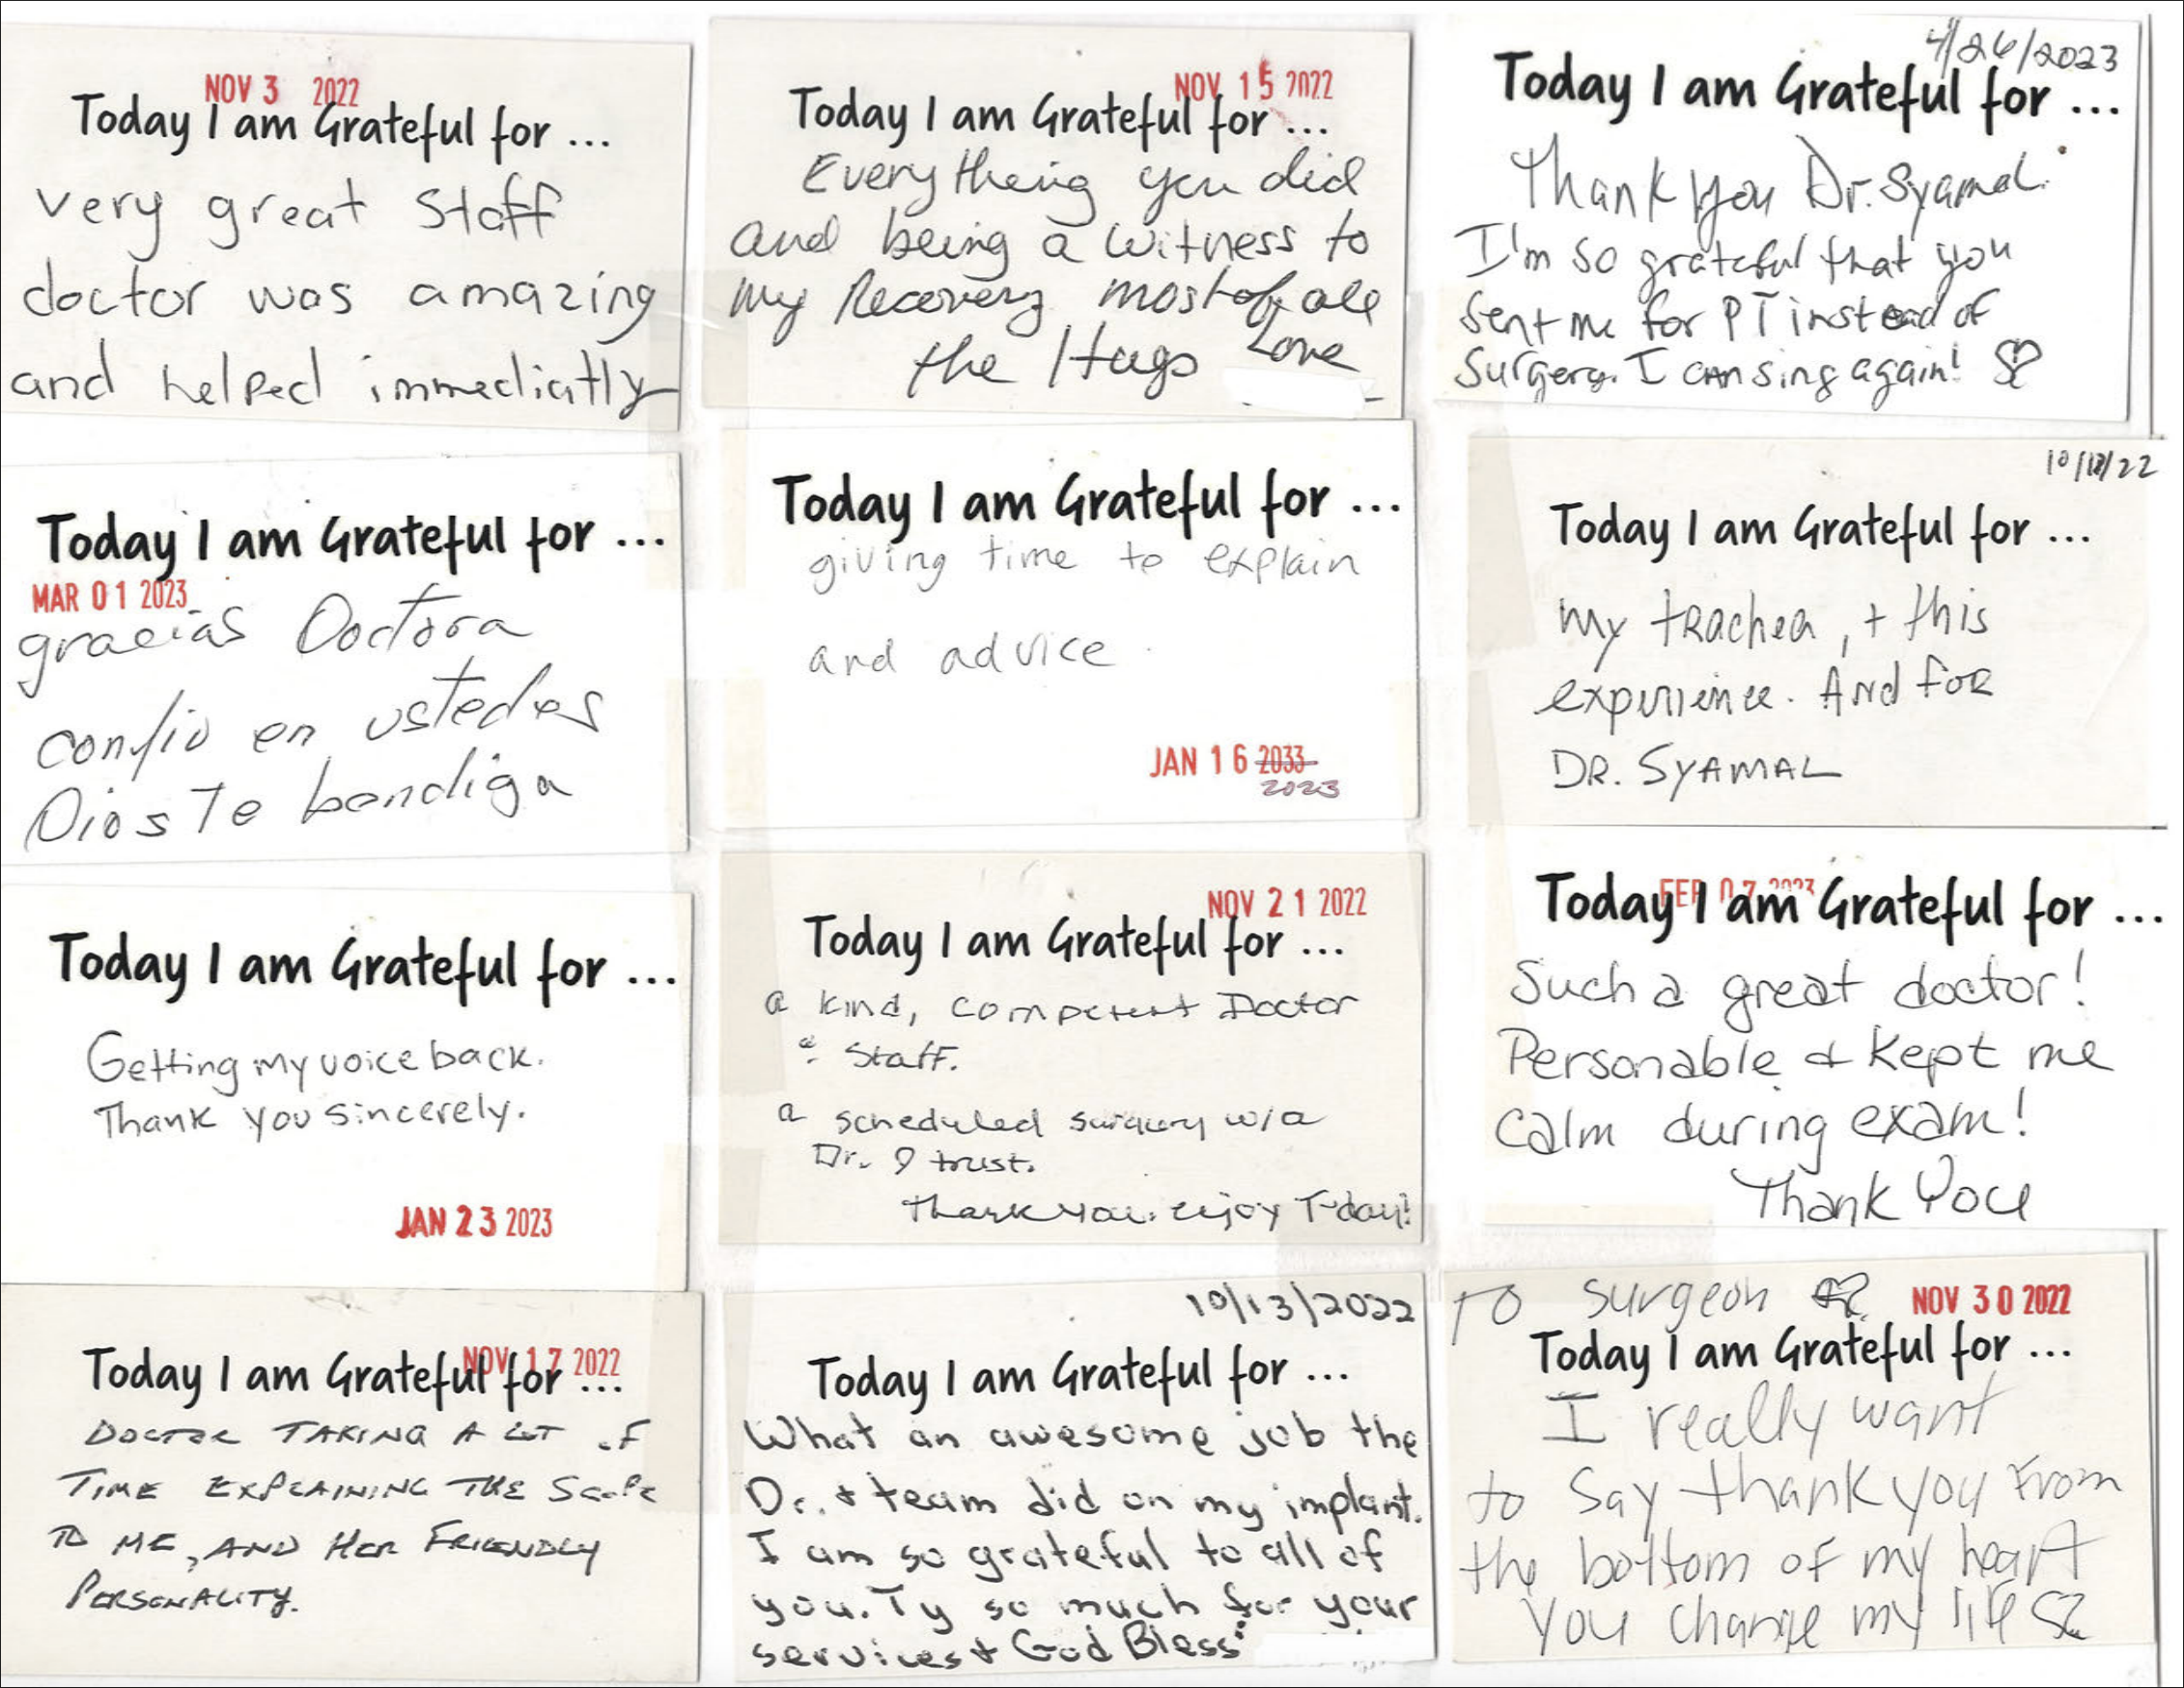 NOV 3 2022
Today I am Grateful for ...
very great staff
doctor was amazing
and helped immediatly
NOV 15 2022
Today I am Grateful for ...
Everything you did
and being a witness to
my Recovery most of all
the Hugs Love
4/26/2023
Today I am Grateful for ...
Thank you Dr. Syamal.
I'm so grateful that you
sent me for PT instead of
surgery. I can sing again!
Today I am Grateful for ...
MAR 01 2023
gracias Doctora
confio en ustedes
Dios Te bendiga
Today I am Grateful for ...
giving time to explain
and advice
JAN 16 2033
2023
10/ /22
Today I am Grateful for ...
my trachea, + this
experience. And for
DR. SYAMAL
Today I am Grateful for ...
Getting my voice back.
Thank you sincerely.
JAN 23 2023
NOV 21 2022
Today I am Grateful for ...
a kind, competent Doctor
& staff.
a scheduled surgery w/a
Dr. I trust.
Thank you. enjoy Today!
FEB 07 2023
Today I am Grateful for ...
Such a great doctor!
Personable & Kept me
calm during exam!
Thank You
NOV 17 2022
Today I am Grateful for ...
DOCTOR TAKING A LOT OF
TIME EXPLAINING THE SCOPE
TO ME, AND HER FRIENDLY
PERSONALITY.
10/13/2022
Today I am Grateful for ...
What an awesome job the
Dr. & team did on my implant.
I am so grateful to all of
you. Ty so much for your
services & God Bless
TO Surgeon NOV 30 2022
Today I am Grateful for ...
I really want
to say thank you from
the bottom of my heart
you change my life